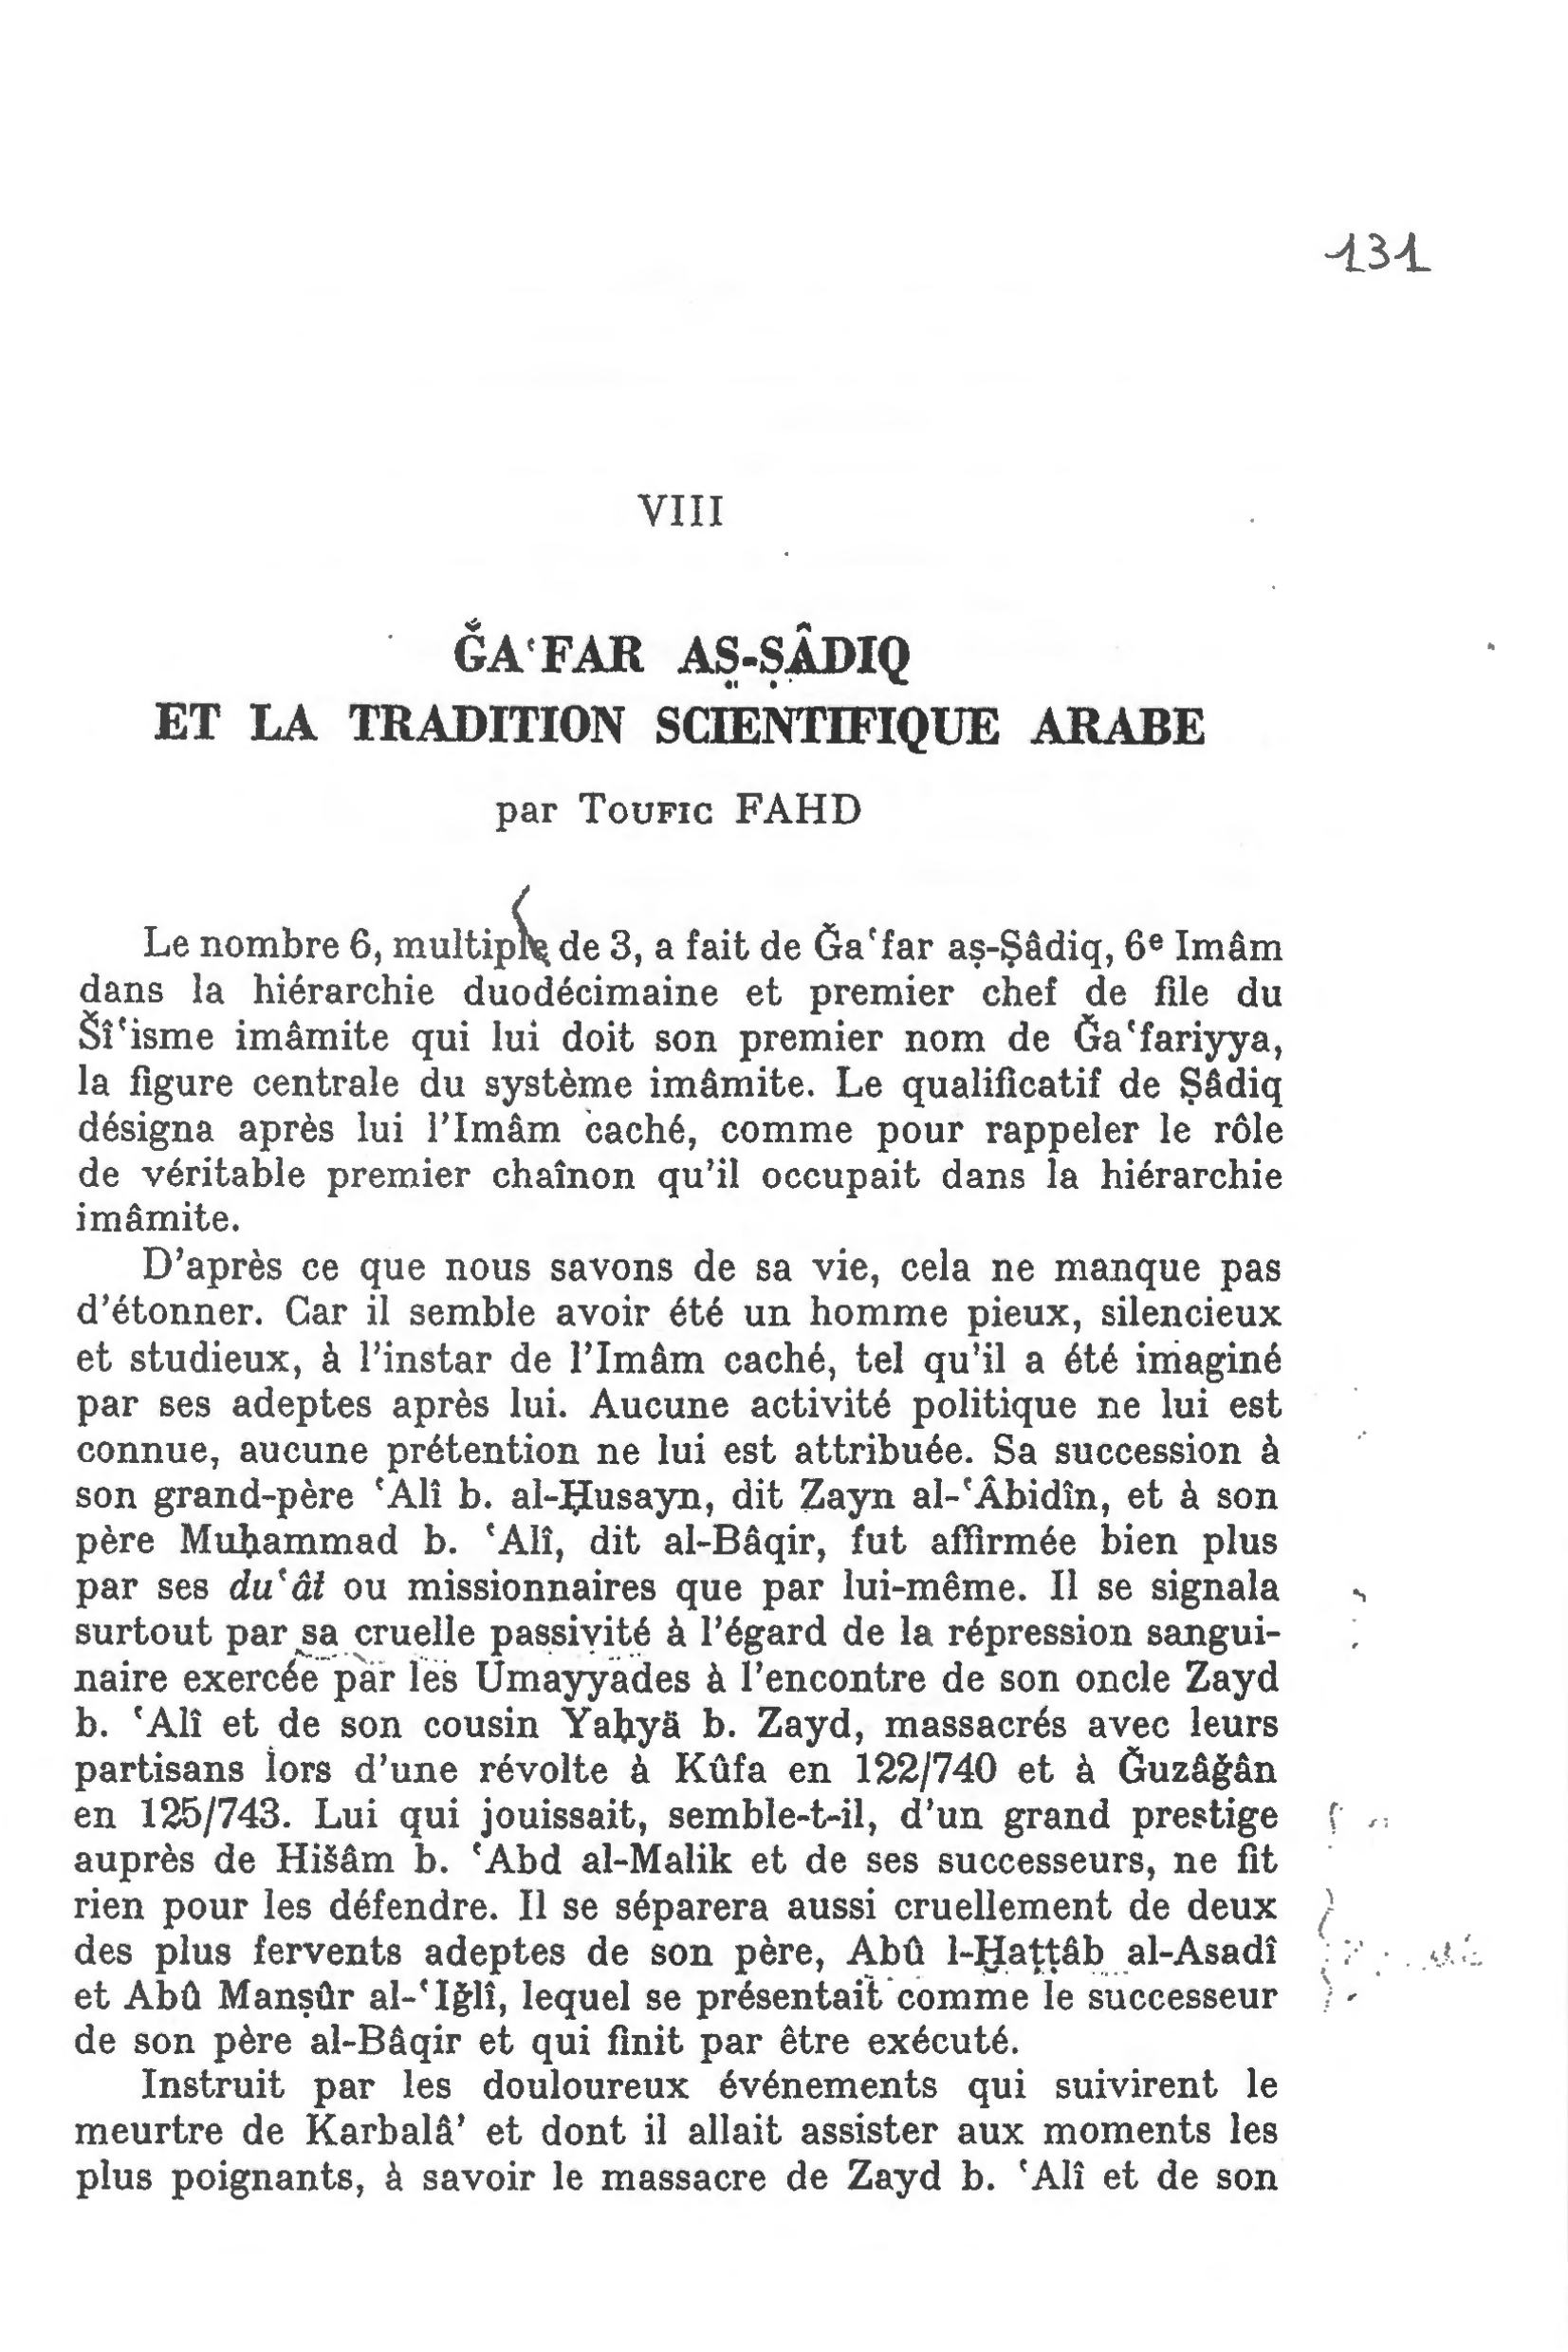 131
VIII
ǦAʿFAR AṢ-ṢÂDIQ
ET LA TRADITION SCIENTIFIQUE ARABE
par Toufic FAHD
Le nombre 6, multiple de 3, a fait de Ǧaʿfar aṣ-Ṣâdiq, 6e Imâm
dans la hiérarchie duodécimaine et premier chef de file du
Šîʿisme imâmite qui lui doit son premier nom de Ǧaʿfariyya,
la figure centrale du système imâmite. Le qualificatif de Ṣâdiq
désigna après lui l’Imâm caché, comme pour rappeler le rôle
de véritable premier chaînon qu’il occupait dans la hiérarchie
imâmite.
D’après ce que nous savons de sa vie, cela ne manque pas
d’étonner. Car il semble avoir été un homme pieux, silencieux
et studieux, à l’instar de l’Imâm caché, tel qu’il a été imaginé
par ses adeptes après lui. Aucune activité politique ne lui est
connue, aucune prétention ne lui est attribuée. Sa succession à
son grand-père ʿAlî b. al-Ḥusayn, dit Zayn al-ʿÂbidîn, et à son
père Muḥammad b. ʿAlî, dit al-Bâqir, fut affirmée bien plus
par ses duʿât ou missionnaires que par lui-même. Il se signala
surtout par sa cruelle passivité à l’égard de la répression sangui-
naire exercée par les Umayyades à l’encontre de son oncle Zayd
b. ʿAlî et de son cousin Yaḥyä b. Zayd, massacrés avec leurs
partisans lors d’une révolte à Kûfa en 122/740 et à Ǧuzâǧân
en 125/743. Lui qui jouissait, semble-t-il, d’un grand prestige
auprès de Hišâm b. ʿAbd al-Malik et de ses successeurs, ne fit
rien pour les défendre. Il se séparera aussi cruellement de deux
des plus fervents adeptes de son père, Abû l-Ḫaṭṭâb al-Asadî
et Abû Manṣûr al-ʿIǧlî, lequel se présentait comme le successeur
de son père al-Bâqir et qui finit par être exécuté.
Instruit par les douloureux événements qui suivirent le
meurtre de Karbalâ’ et dont il allait assister aux moments les
plus poignants, à savoir le massacre de Zayd b. ʿAlî et de son